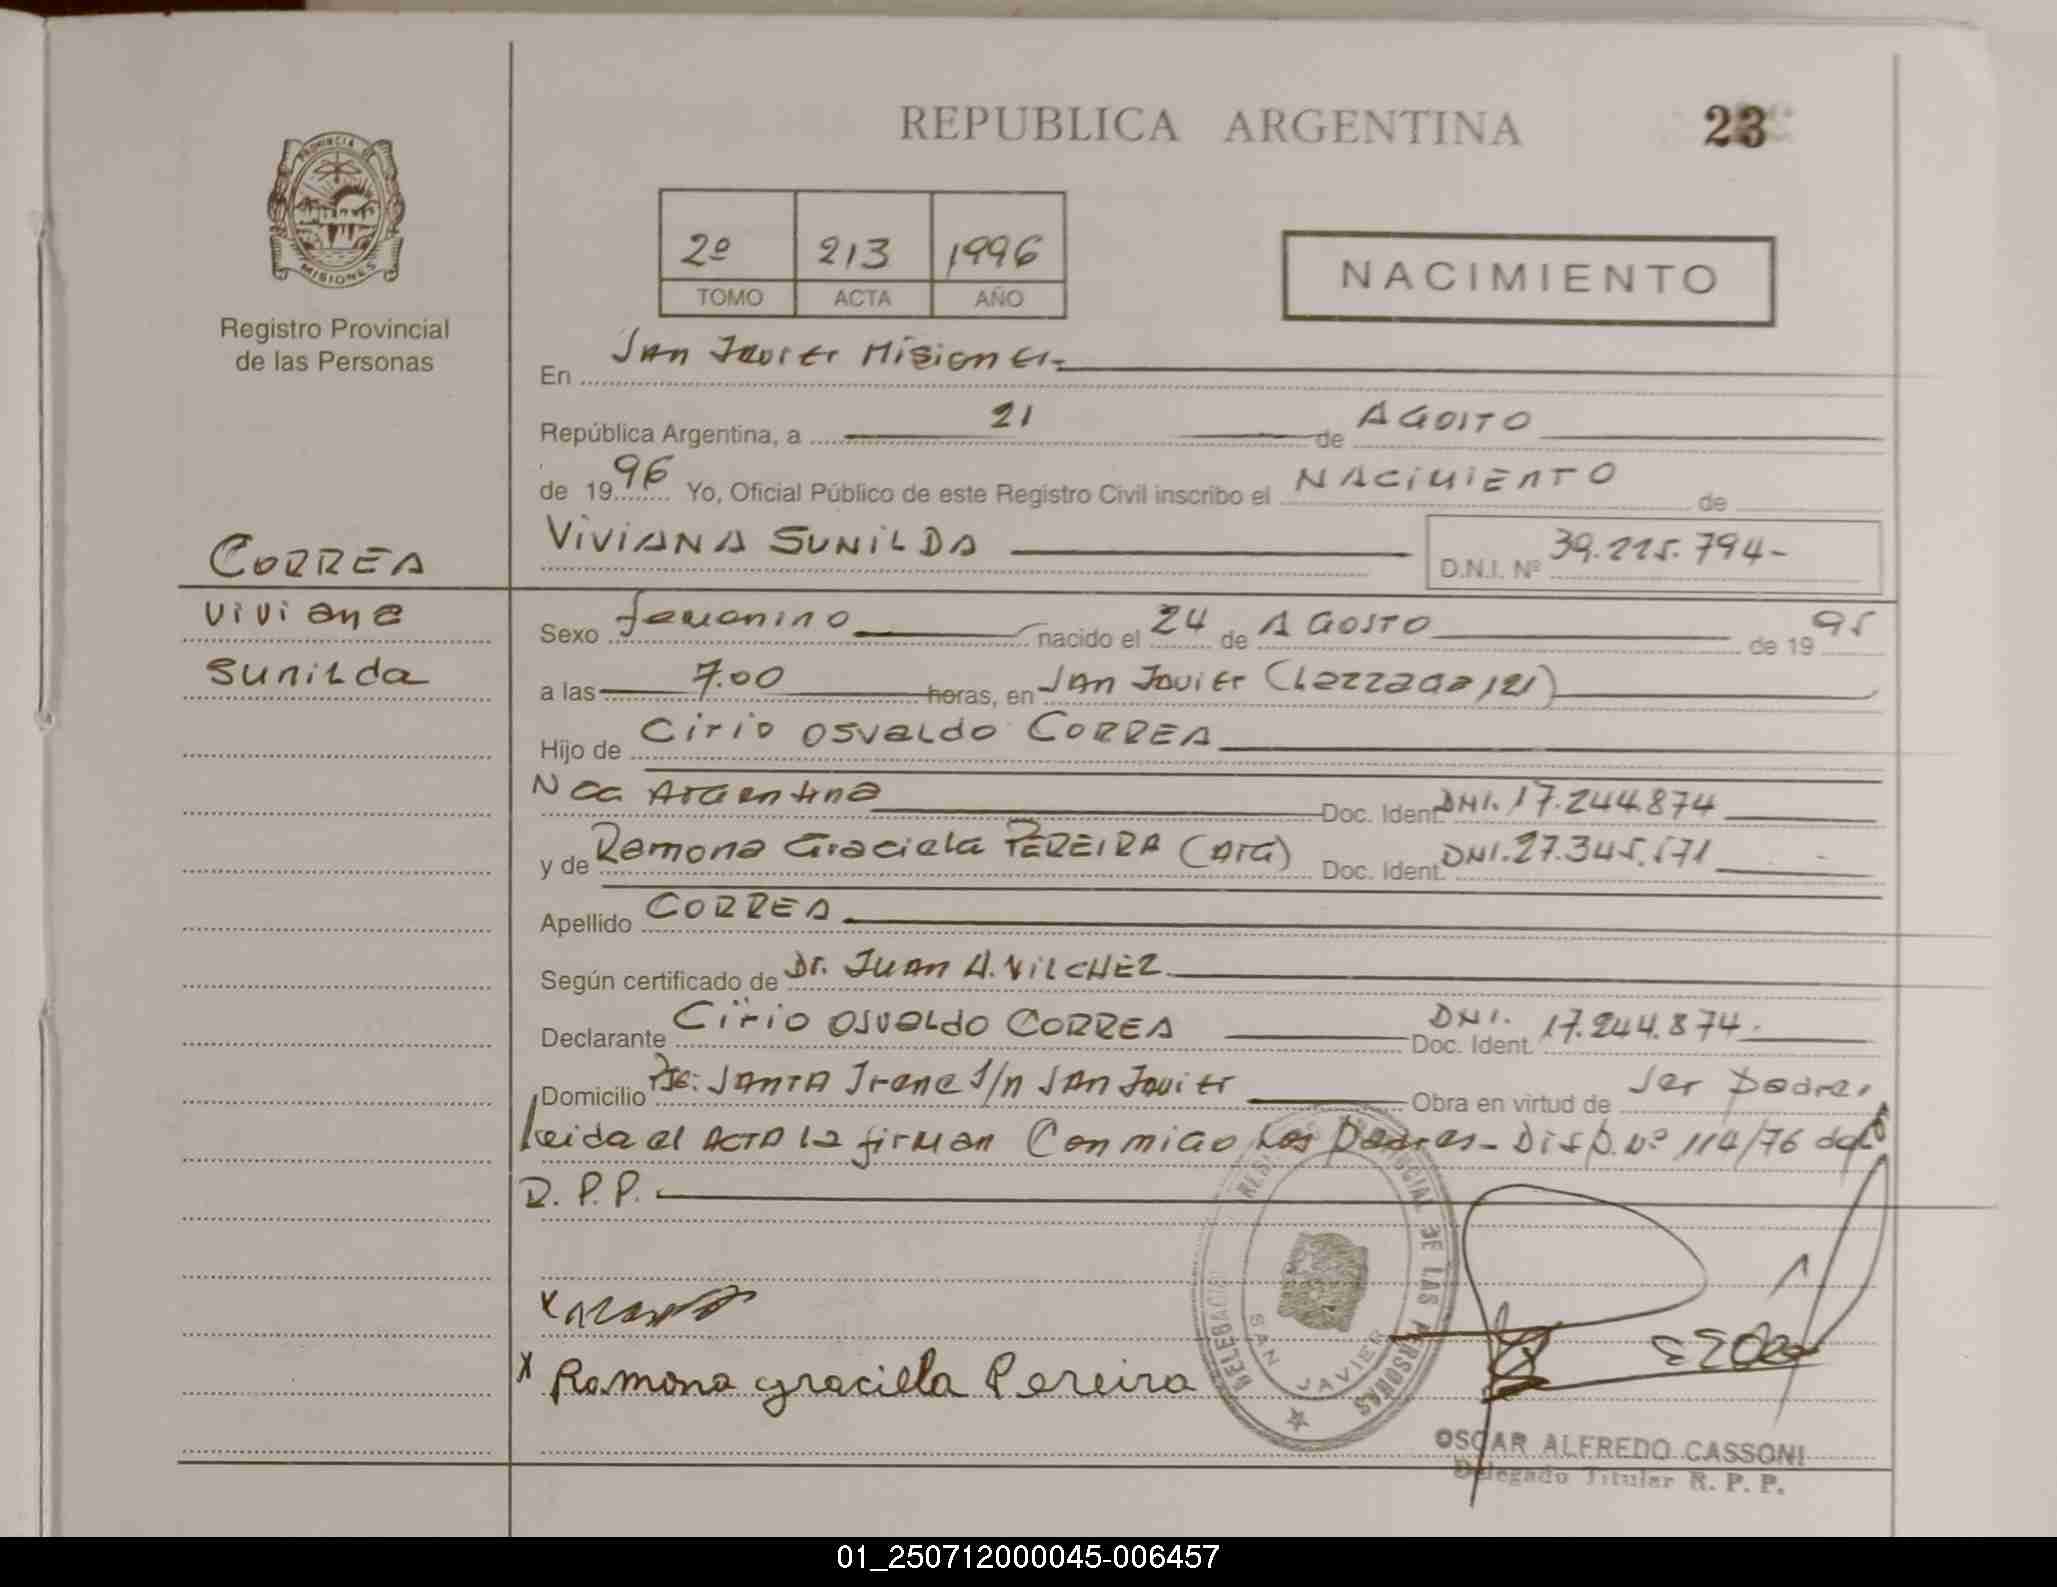 REPUBLICA ARGENTINA 23
PROVINCIA DE
MISIONES
Registro Provincial
de las Personas
2º 213 1996
TOMO ACTA AÑO
NACIMIENTO
En San Javier Misiones.-
República Argentina, a 21 de AGOSTO
de 1996 Yo, Oficial Público de este Registro Civil inscribo el NACIMIENTO de
VIVIANA SUNILDA D.N.I. Nº 39.225.794-
CORREA
Viviana
Sunilda
Sexo femenino nacido el 24 de AGOSTO de 1995
a las 7.00 horas, en San Javier (Lezzada 121)
Hijo de Cirio Osvaldo CORREA
Nac Argentina Doc. Ident. DNI. 17.244.874
y de Ramona Graciela PEREIRA (ARG) Doc. Ident. DNI. 27.345.571
Apellido CORREA
Según certificado de Dr. Juan A. VILCHEZ
Declarante Cirio Osvaldo CORREA Doc. Ident. DNI. 17.244.874.
Domicilio Pje: SANTA Irene S/n San Javier Obra en virtud de Ser Padre,
Leida el ACTA la firman Conmigo Los Padres- Disp. Nº 114/76 del
R.P.P.
x
x Ramona graciela Pereira
DELEGACION SAN JAVIER
REGISTRO PROVINCIAL DE LAS PERSONAS
OSCAR ALFREDO CASSONI
Delegado Titular R. P. P.
01_250712000045-006457